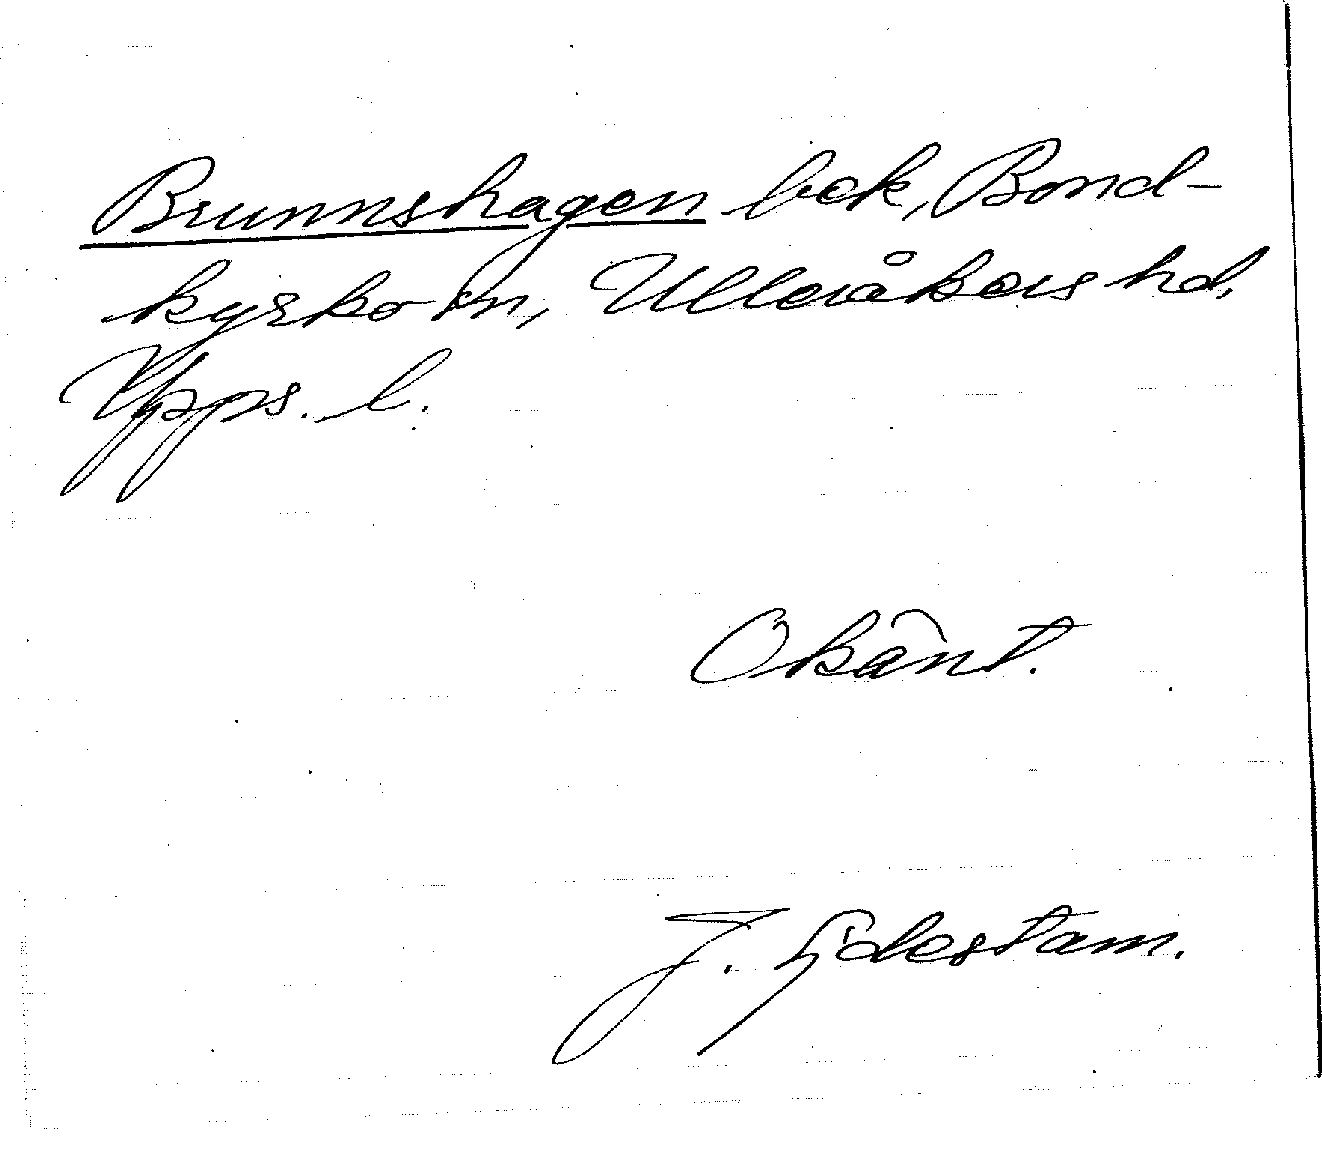 Brunnshagen bek, Bond-
kyrko sn, Ulleråkers hd,
Upps. l.
Okänt.
J. Gidestam.